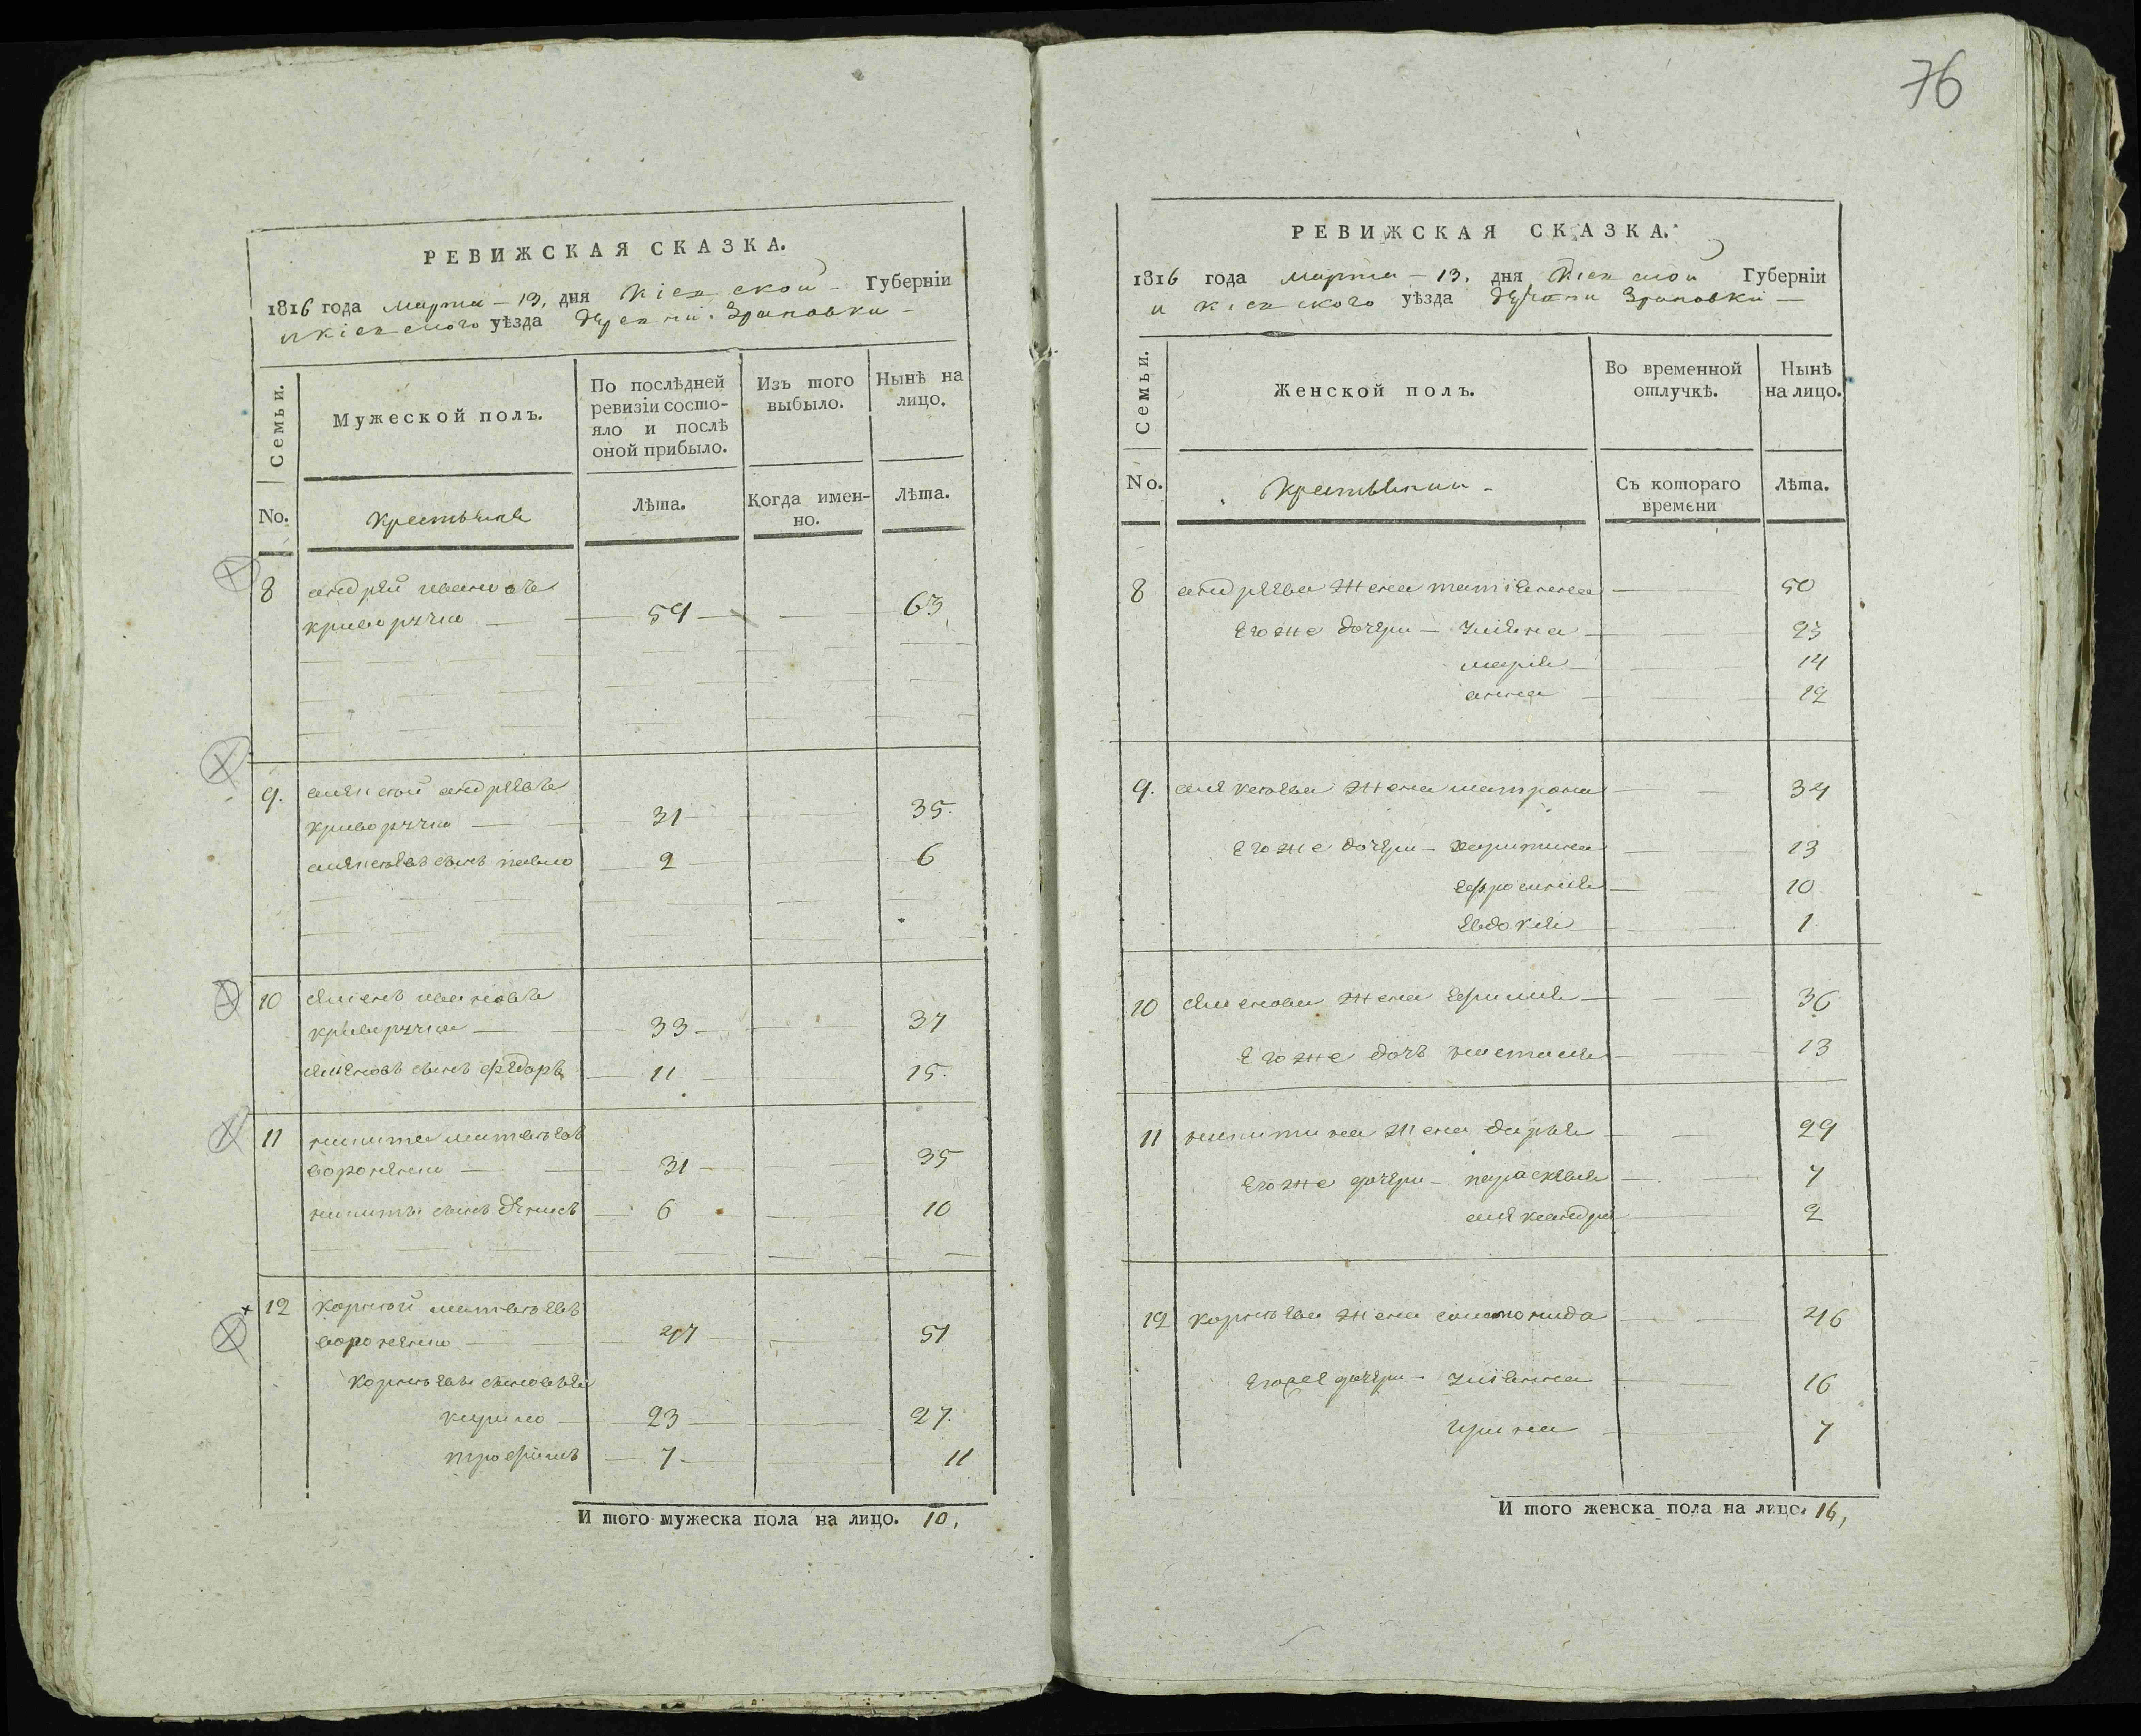 76
РЕВИЖСКАЯ СКАЗКА.
1816 года марта - 13. дня Кіевской Губерніи
и кіевского уѣзда деревни
Семьи.
Мужеской полъ.
По послѣдней ревизіи состо-
яло и послѣ
оной прибыло.
Изъ того
выбыло.
Нынѣ на
лицо.
No.
крестьяне
Лѣта.
Когда имен-
но.
Лѣта.
8 андрей ивановъ
криворучко 59 63
9. алексей андреевъ
криворучко 31 35.
алексеевъ сынъ павло 2 6
10 семенъ ивановъ
криворучко 33 37
семеновъ сынъ федоръ 11 15.
11 никита матвеевъ
31 35
никиты сынъ денисъ 6 10
12 корней матвеевъ
47 51
корнеевы сыновья
кирило 23 27.
трофимъ 7 11
И того мужеска пола на лицо. 10,
РЕВИЖСКАЯ СКАЗКА.
1816 года марта - 13. дня Кіевской Губерніи
и кіевского уѣзда деревни
Семьи.
Женской полъ.
Во временной
отлучкѣ.
Нынѣ
на лицо.
No.
крестьянки
Съ котораго
времени
Лѣта.
8 андреева жена татіянна 50
его же дочери - уліяна 23
марія 14
анна 12
9. алексеева жена матрона 34
его же дочери - харитина 13
ефросинія 10
евдокія 1
10 семенова жена ефимия 36
его же дочь настасия 13
11 никитина жена дарья 29
его же дочери - параскевия 7
александра 2
12 корнеева жена соломонида 46
дочери - уліянна 16
ирина 7
И того женска пола на лицо. 16,